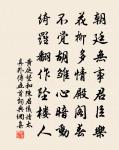 朝廷無事君臣樂
花柳多情殿閣春
不覺胡雛心暗動
綺羅翻作墜樓人
黃庭堅和陳君儀讀太
真外傳五首詞典網